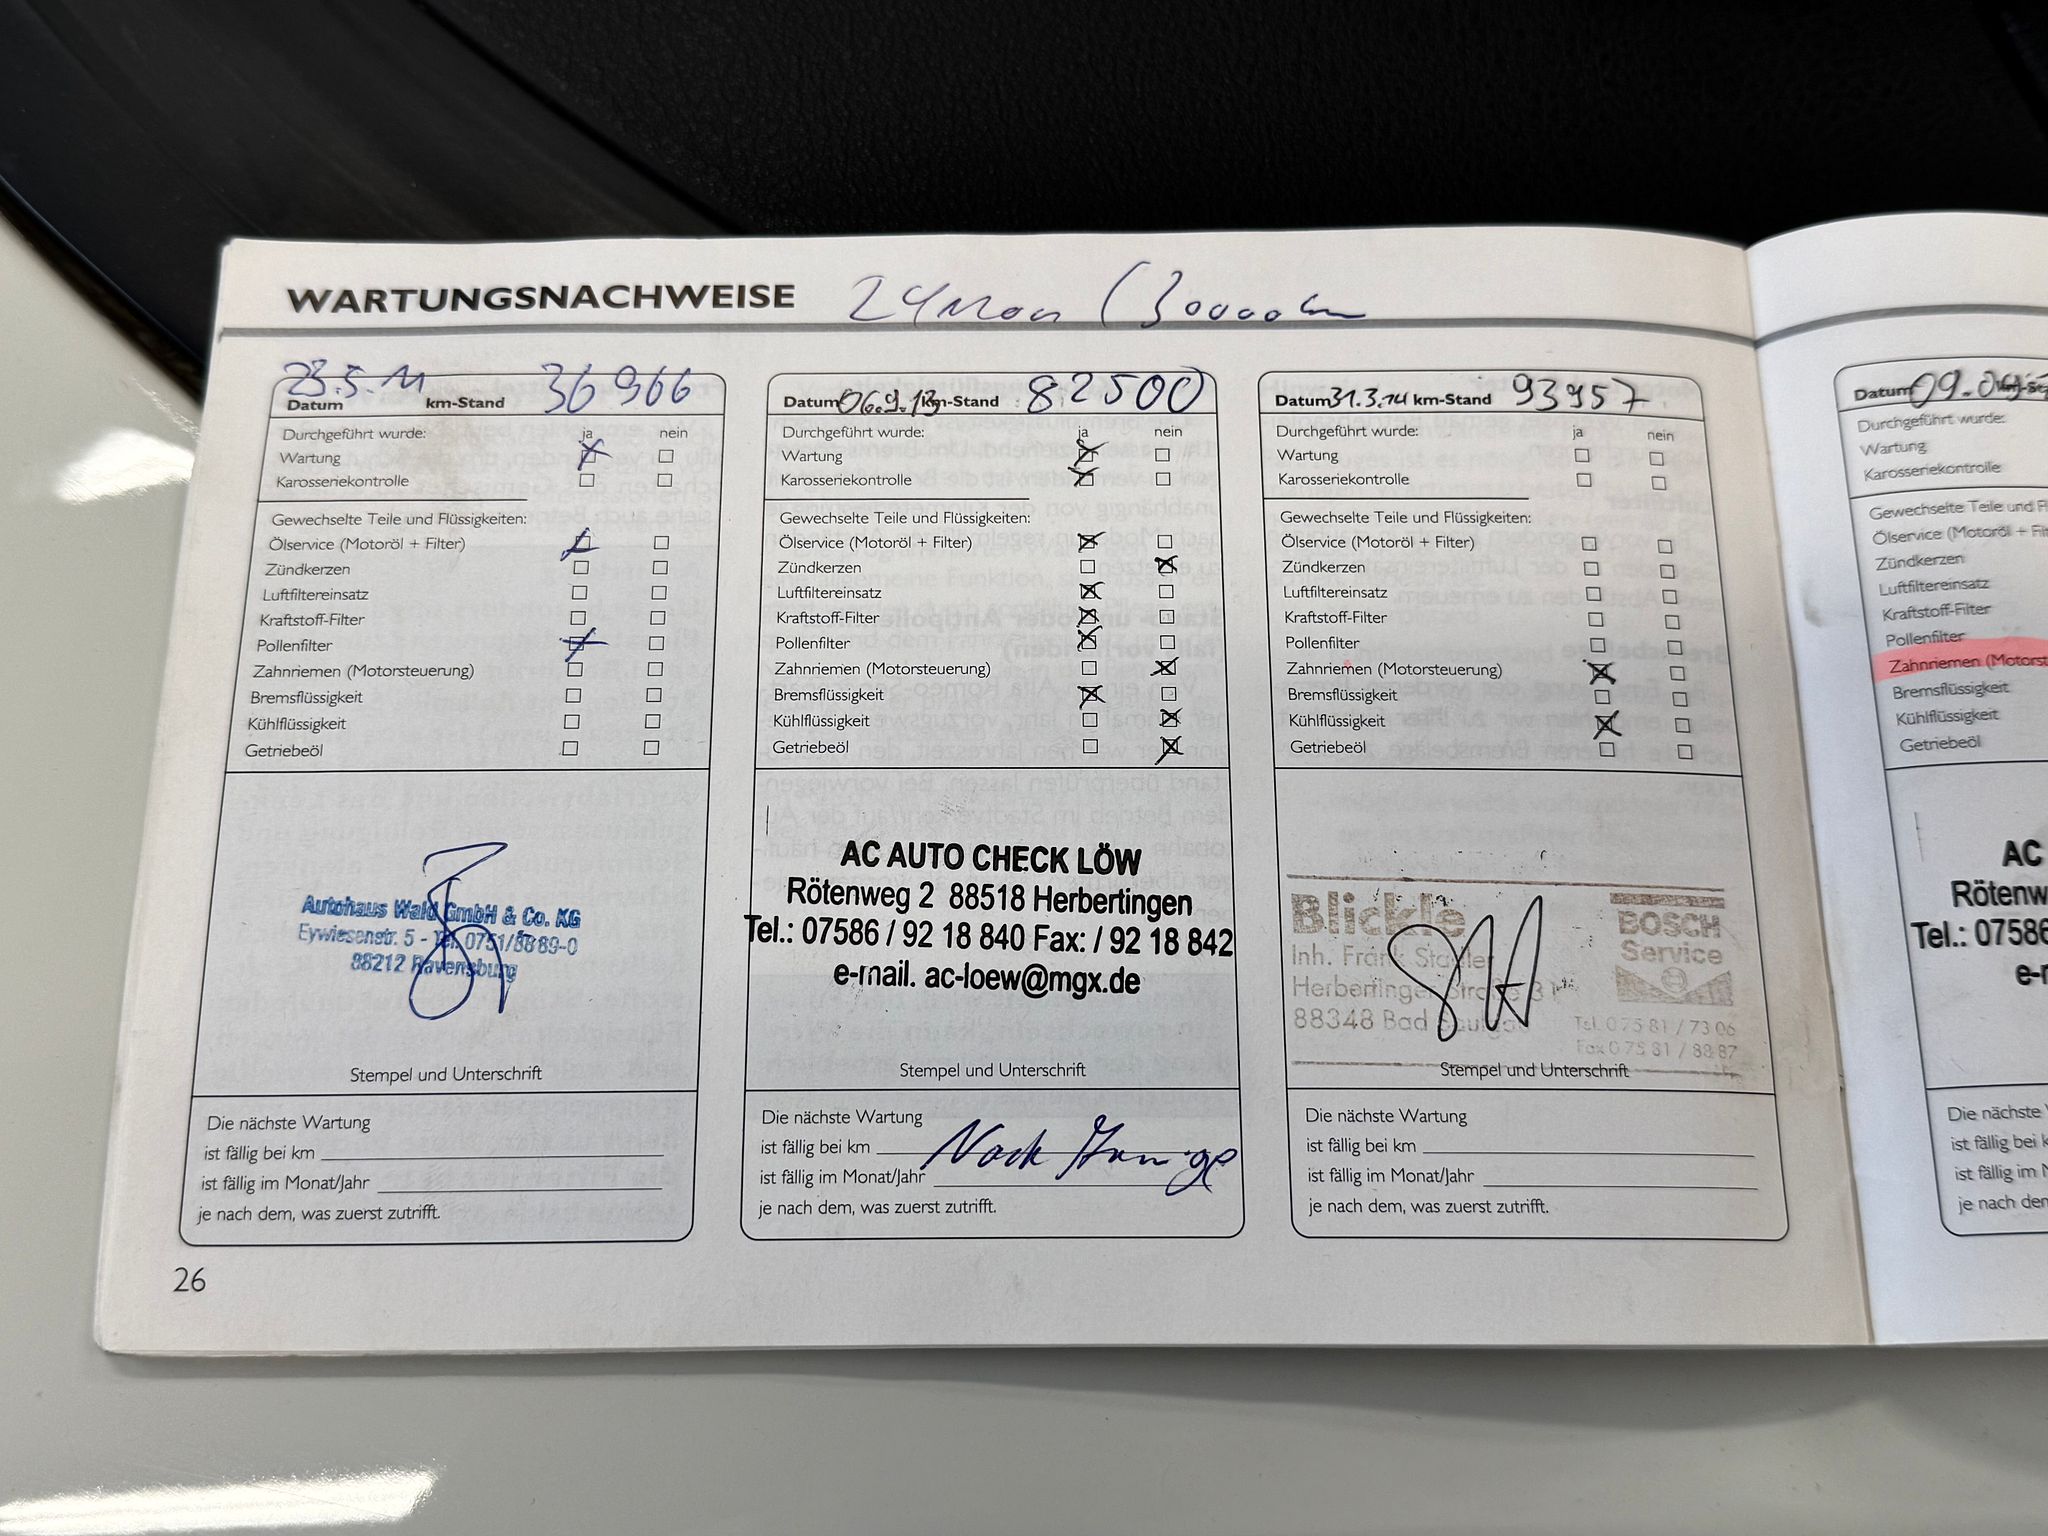 WARTUNGSNACHWEISE 24 Mon / 30000 km
23.5.11 36966
Datum km-Stand
Durchgeführt wurde: ja nein
Wartung
Karosseriekontrolle
Gewechselte Teile und Flüssigkeiten:
Ölservice (Motoröl + Filter)
Zündkerzen
Luftfiltereinsatz
Kraftstoff-Filter
Pollenfilter
Zahnriemen (Motorsteuerung)
Bremsflüssigkeit
Kühlflüssigkeit
Getriebeöl
Autohaus Wald GmbH & Co. KG
Eywiesenstr. 5 - Tel. 0751/8889-0
88212 Ravensburg
Stempel und Unterschrift
Die nächste Wartung
ist fällig bei km
ist fällig im Monat/Jahr
je nach dem, was zuerst zutrifft.
Datum 06.9.13 km-Stand 82500
Durchgeführt wurde: ja nein
Wartung
Karosseriekontrolle
Gewechselte Teile und Flüssigkeiten:
Ölservice (Motoröl + Filter)
Zündkerzen
Luftfiltereinsatz
Kraftstoff-Filter
Pollenfilter
Zahnriemen (Motorsteuerung)
Bremsflüssigkeit
Kühlflüssigkeit
Getriebeöl
AC AUTO CHECK LÖW
Rötenweg 2 88518 Herbertingen
Tel.: 07586 / 92 18 840 Fax: / 92 18 842
e-mail. ac-loew@mgx.de
Stempel und Unterschrift
Die nächste Wartung
ist fällig bei km Nach
ist fällig im Monat/Jahr
je nach dem, was zuerst zutrifft.
Datum 31.3.14 km-Stand 93957
Durchgeführt wurde: ja nein
Wartung
Karosseriekontrolle
Gewechselte Teile und Flüssigkeiten:
Ölservice (Motoröl + Filter)
Zündkerzen
Luftfiltereinsatz
Kraftstoff-Filter
Pollenfilter
Zahnriemen (Motorsteuerung)
Bremsflüssigkeit
Kühlflüssigkeit
Getriebeöl
Blickle BOSCH
Inh. Frank Stadler Service
Herbertinger Straße 31
88348 Bad Saulgau Tel. 0 75 81 / 73 06
Fax 0 75 81 / 88 87
Stempel und Unterschrift
Die nächste Wartung
ist fällig bei km
ist fällig im Monat/Jahr
je nach dem, was zuerst zutrifft.
26
Datum 09.09 km-St
Durchgeführt wurde:
Wartung
Karosseriekontrolle
Gewechselte Teile und Fl
Ölservice (Motoröl + Filt
Zündkerzen
Luftfiltereinsatz
Kraftstoff-Filter
Pollenfilter
Zahnriemen (Motorst
Bremsflüssigkeit
Kühlflüssigkeit
Getriebeöl
AC
Rötenw
Tel.: 07586
e-r
Die nächste
ist fällig bei k
ist fällig im M
je nach den